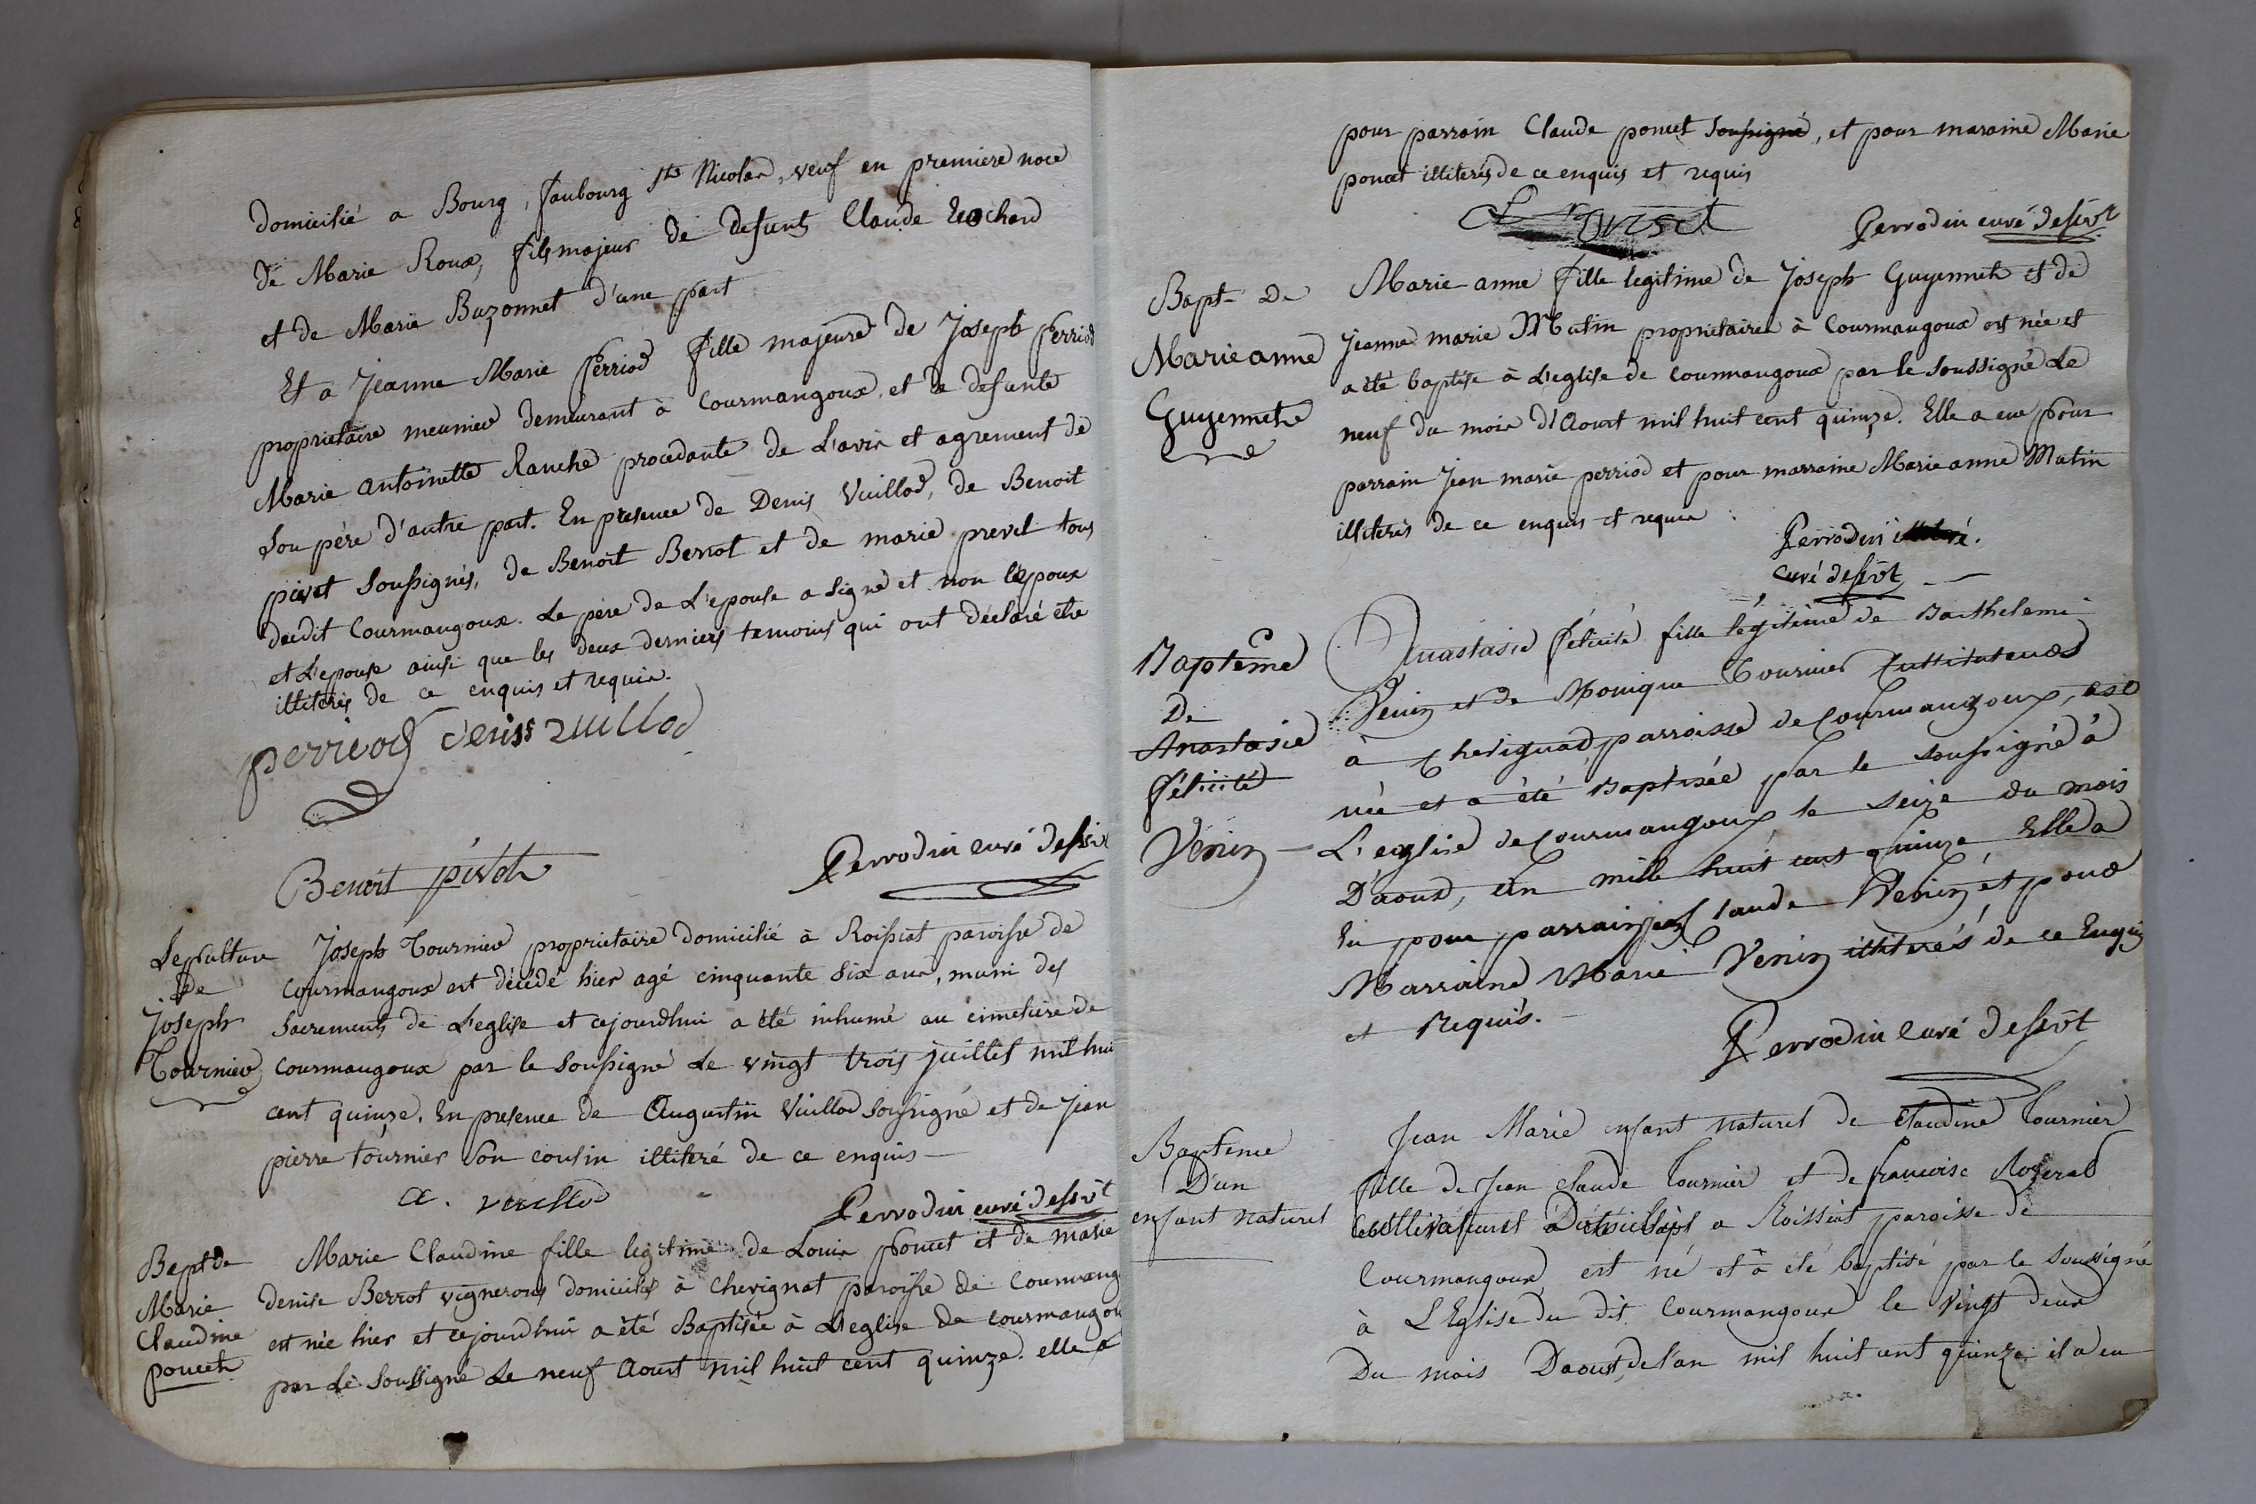 domicilié a Bourg, faubourg Sts Nicolas, veuf en premiere noce
de Marie Roux, fils majeur de defunts Claude Rochard
et de Marie Buzonnet d'une part
Et a Jeanne Marie Perriod fille majeure de Joseph Perriod
proprietaire meunier demeurant à Courmangoux, et de defunte
Marie antoinette Ranche procedante de L'avis et agrement de
Son père d'autre part. En presence de Denis Vuillod, de Benoit
pivet Soussignés, de Benoit Berrot et de marie prevel tous
dudit Courmangoux. Le père de L'epouse a Signé et non l'epoux
et L'epouse ainsi que les deux derniers temoins qui ont déclaré etre
illiterés de ce enquis et requis.
perriod denis vuillod
Benoit pivet
Perrodin curé desser
Sepulture
de
Joseph
Tournier
Joseph Tournier proprietaire domicilié à Roissiat paroisse de
Courmangoux est décédé hier agé cinquante Six ans, muni des
Sacrements de L'eglise et cejourdhui a été inhumé au cimetiere de
courmangoux par le Soussigné Le vingt trois juillet mil hui
cent quinze. En presence de Augustin Vuillod Soussigné et de Jean
pierre tournier Son cousin illiteré de ce enquis
a. vuillod
Perrodin curé desservt
Bapt de
Marie
Claudine
poncet
Marie Claudine fille legitime de Louis poncet et de marie
denise Berrot vignerons domiciliés à Chevignat paroisse de Courmang
est née hier et cejourdhui a été Baptisée à L'eglise de courmangou
par Le Soussigné Le neuf Aout mil huit cent quinze. elle a
pour parrain Claude poncet Soussigné, et pour maraine Marie
poncet illiterés de ce enquis et requis
Perrodin curé desservt
Bapt de
Marie anne
Guyennet
Marie anne fille legitime de Joseph Guyennet et de
Jeanne marie Mutin proprietaires à Courmangoux est née et
a été baptisé à L'eglise de courmangoux par le Soussigné Le
neuf du mois d'Aout mil huit cent quinze. Elle a eue pour
parrain Jean marie perriod et pour marraine Marie anne Mutin
illiterés de ce enquis et requis
Perrodin
curé desservt
Baptême
De
Anastasie
félicité
Venin
Anastasie félicité fille légitime de Barthelemi
Venin et de Monique Tournier Cultivateurs
à Chevignad, parroisse de Courmangoux, est
née et a été Baptisée par le soussigné à
L'eglise de Courmangoux le seize du mois
D'aoux, An mille huit cens quinze Elle a
Eu pour parrain jean Claude Venin, et pour
Marraine Marie Venin illiterés de ce Enquis
et Requis.
Perrodin curé desservt
Bapteme
D'un
enfant naturel
Jean Marie enfant naturel de Claudine Tournier
fille de Jean Claude Tournier et de francoise
Cultivateurs Domiciliés a Roissiat paroisse de
Courmangoux est né et a été baptisé par le Soussigné
à L'Eglise du dit Courmangoux le Vingt deux
Du mois D'aoust, de l'an mil huit cent quinze il a eu